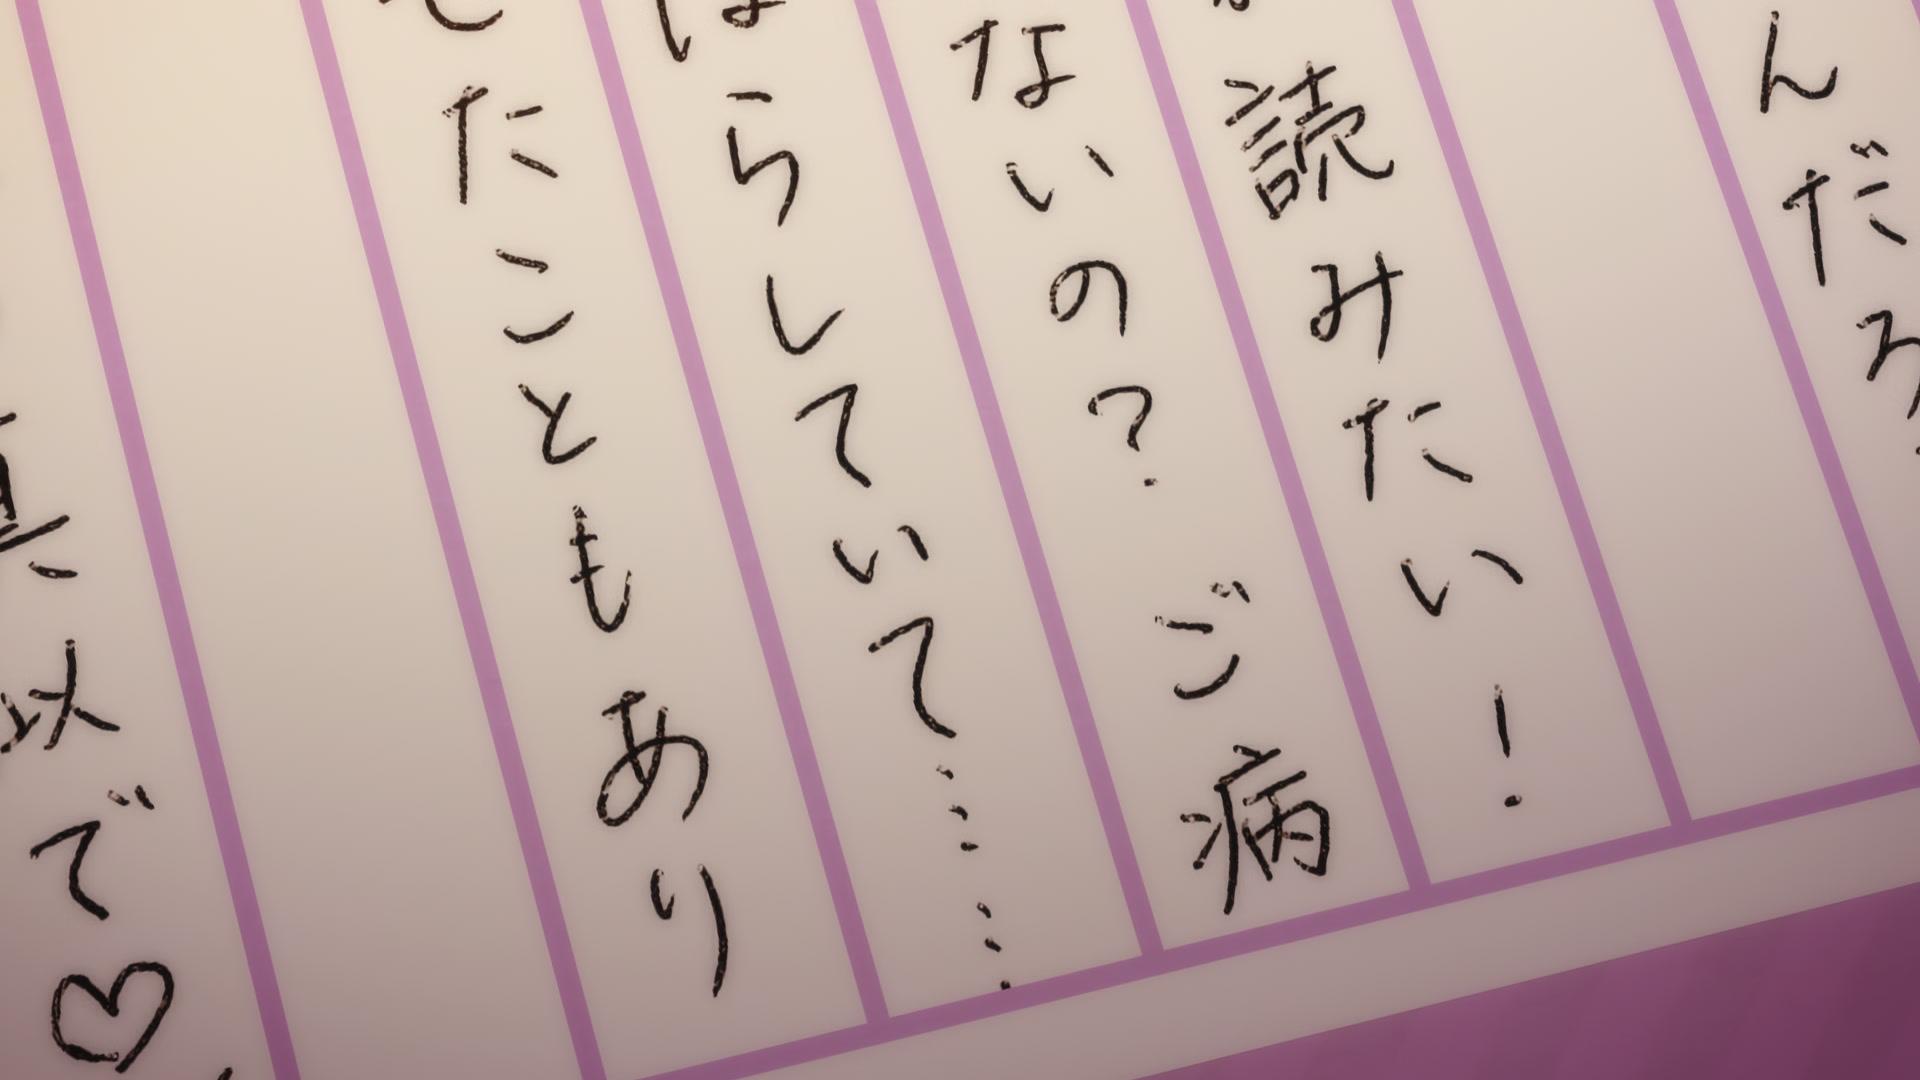 んだろ
読みたい！
ないの？ ご病
ばらしていて……
したこともあり
真似で♡